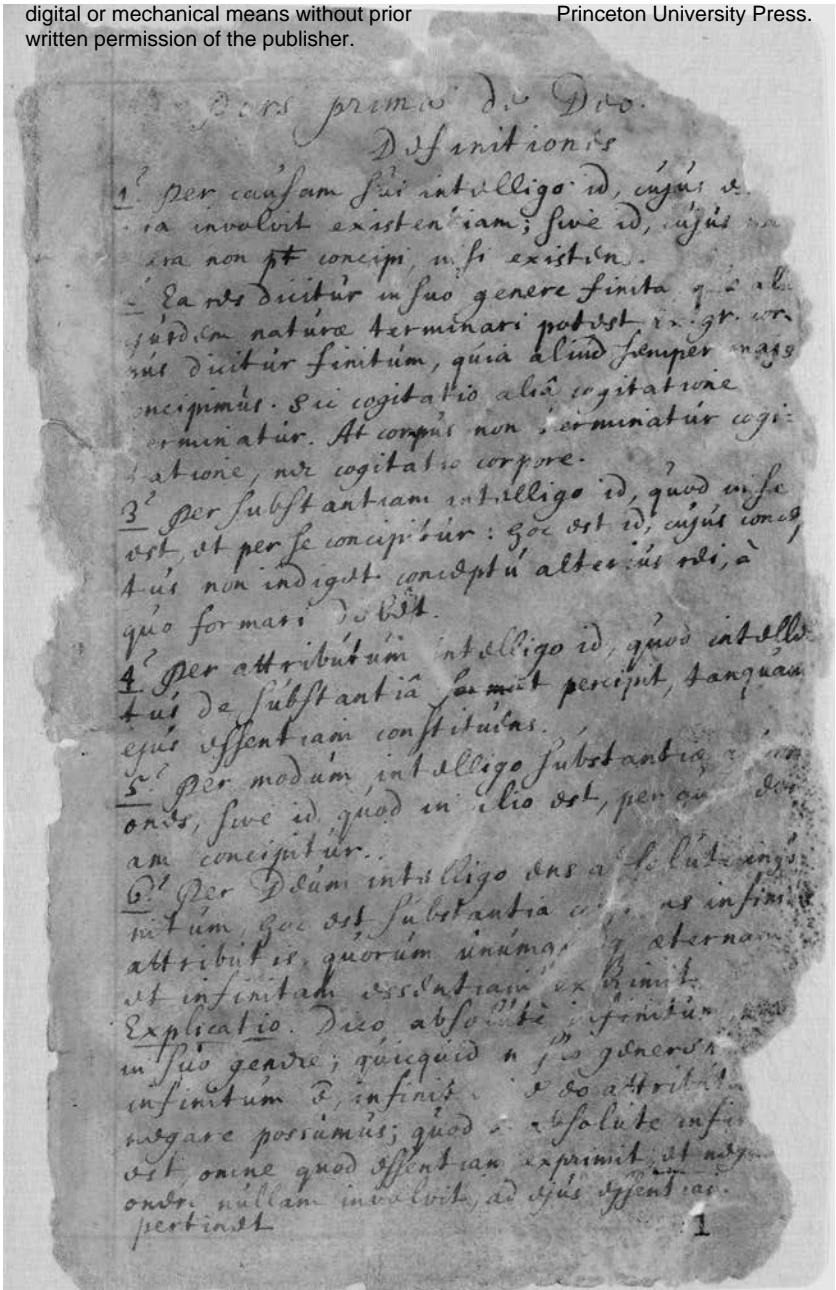 digital or mechanical means without prior
written permission of the publisher.
Princeton University Press.
Pars prima de Deo.
Definitiones
1. Per causam sui intelligo id, cujus e
tia involvit existentiam; sive id, cujus na
ura non pt concipi, nisi existen.
2 Ea res dicitur in suo genere finita, quæ al
jusdem naturæ terminari potest ex. gr. cor
pus dicitur finitum, quia aliud semper majs
oncipimus. Sic cogitatio aliâ cogitatione
erminatur. At corpus non terminatur cogi=
tatione, nec cogitatio corpore.
3 Per substantiam intelligo id, quod in se
est, et per se concipitur: hoc est id, cujus concep
tus non indiget conceptu alterius rei, à
quo formari debet.
4 Per attributum intelligo id, quod intelle
tus de substantiâ percipit, tanquam
ejus essentiam constituens.
5. Per modum intelligo substantiæ
ones, sive id quod in alio est, per qu
am concipitur.
6. Per Deum intelligo ens absolute inf
nitum, hoc est substantia infini
attributis, quorum unumq æternam
et infinitam essentiam exprimit.
Explicatio. Dico absolutè infinitum,
in suo genere; quicquid n suo genere
infinitum ē, infinit de eo attributa
negare possumus; quod absolute infi
est, omne quod essentiam exprimit, et neg
onem nullam involvit, ad ejus essentiam
pertinet
1